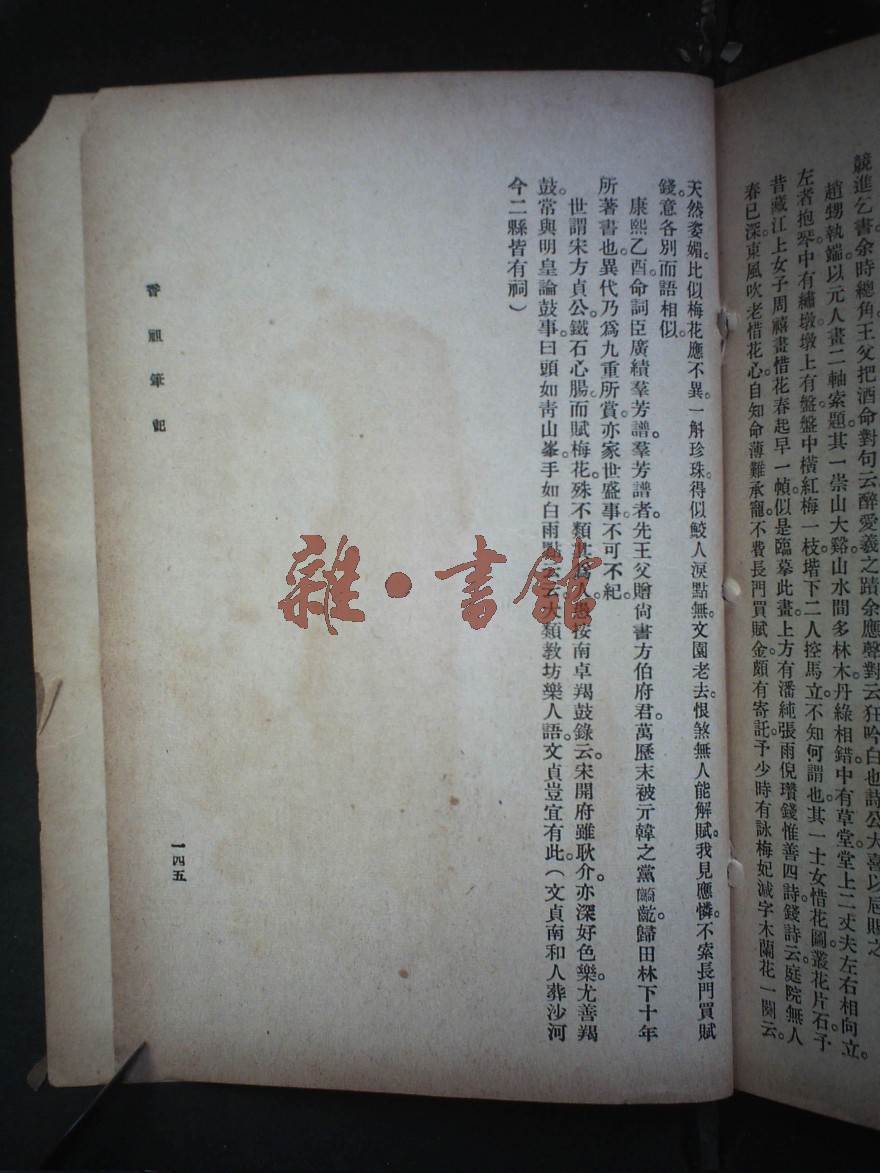 競進乞書。余時總角。王父把酒命對句云醉愛羲之蹟。余應聲對云狂吟白也詩。公大喜以卮賜之
趙甥執端。以元人畫二軸索題。其一崇山大谿。山水間多林木。丹綠相錯。中有草堂。堂上二丈夫左右相向立。
左者抱琴。中有繡墩。墩上有盤。盤中橫紅梅一枝。堦下二人控馬立。不知何謂也。其一士女惜花圖。叢花片石。予
昔藏江上女子周禧畫惜花春起早一幀。似是臨摹此畫。上方有潘純張雨倪瓚錢惟善四詩。錢詩云。庭院無人
春已深。東風吹老惜花心。自知命薄難承寵。不費長門買賦金。頗有寄託。予少時有詠梅妃減字木蘭花一闋云。
天然婺媚。比似梅花應不異。一斛珍珠。得似鮫人淚點無。文園老去。恨煞無人能解賦。我見應憐。不索長門買賦
錢。意各別而語相似。
康熙乙酉。命詞臣廣續羣芳譜。羣芳譜者。先王父贈尚書方伯府君。萬歷末被亓韓之黨齮齕。歸田林下十年
所著書也。異代乃爲九重所賞。亦家世盛事。不可不紀。
世謂宋方貞公。鐵石心腸。而賦梅花。殊不類其爲人。愚按南卓羯鼓錄云。宋開府雖耿介。亦深好色樂。尤善羯
鼓。常與明皇論鼓事。曰頭如靑山峯。手如白雨點云云。大類教坊樂人語。文貞豈宜有此。(文貞南和人葬沙河
今二縣皆有祠)
香祖筆記
一四五
雜·書館